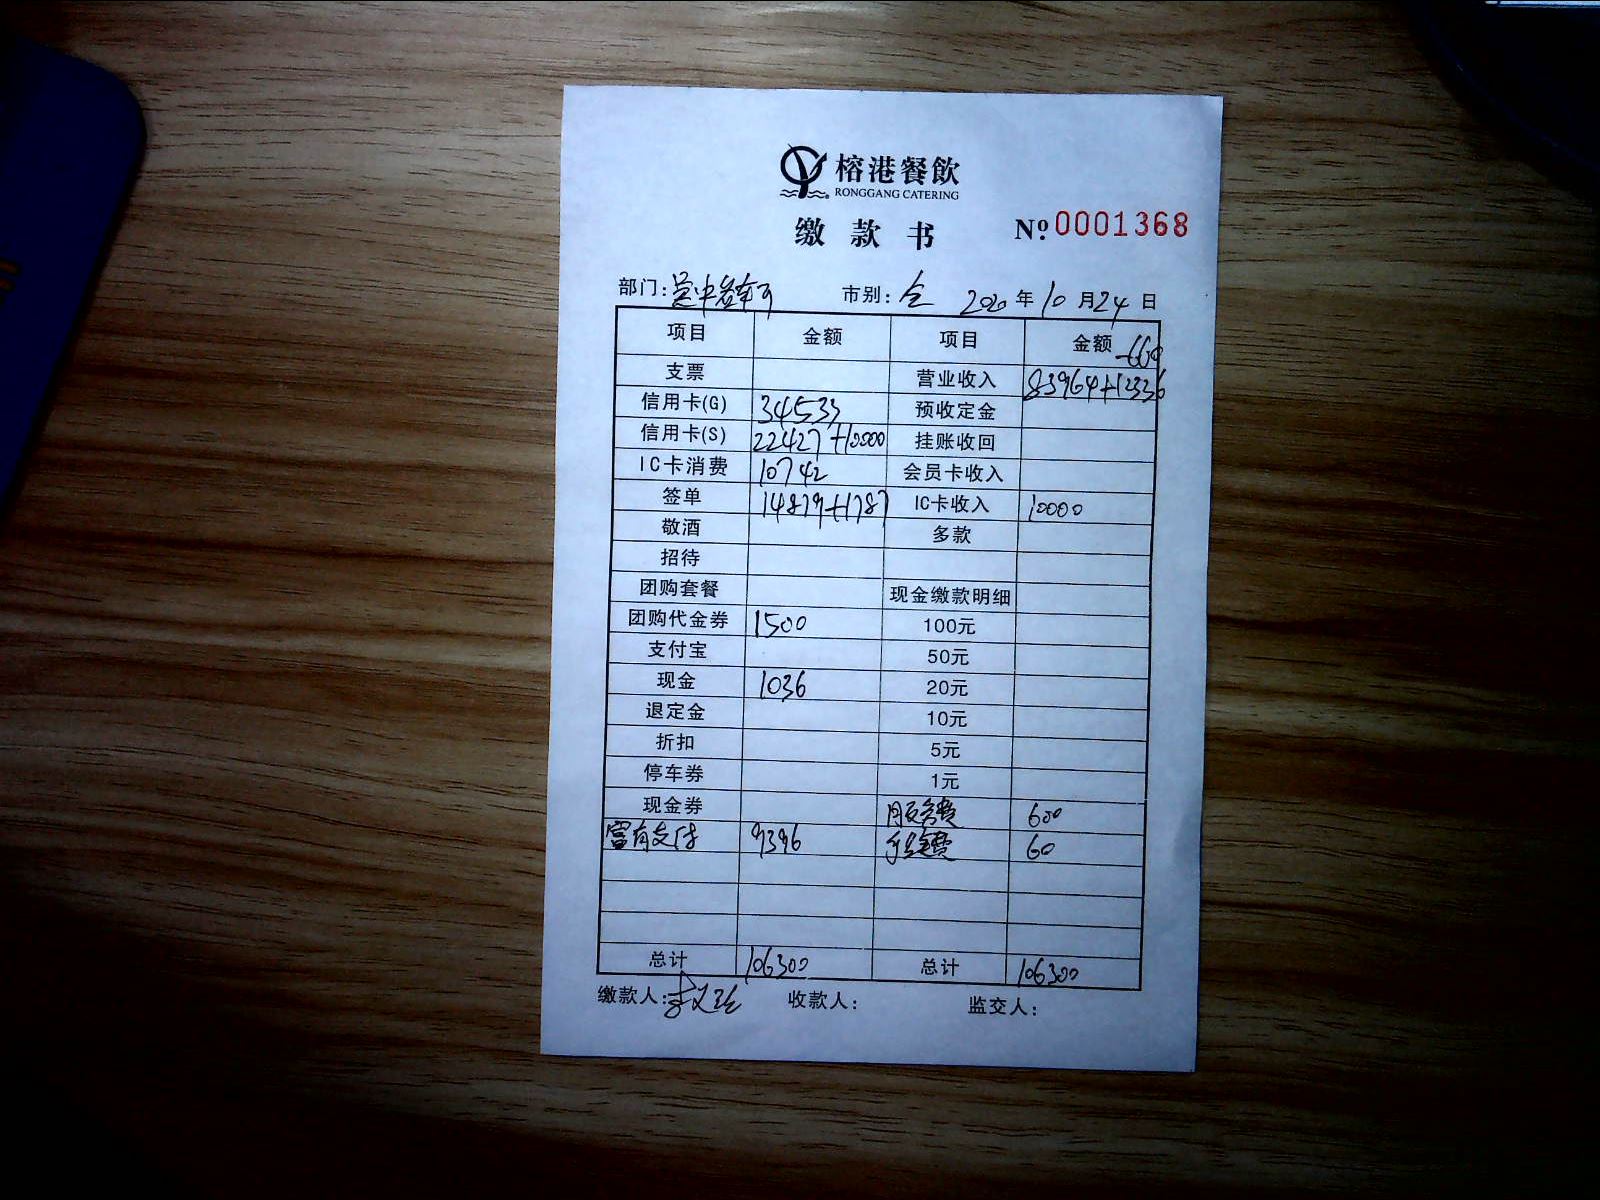 榕港餐飲
RONGGANG CATERING
缴款书 Nº 0001368
部门: 市别: 全 2020 年 10 月 24 日
项目 金额 项目 金额 -660
支票 营业收入 83964+12336
信用卡(G) 34533 预收定金
信用卡(S) 22427+10000 挂账收回
IC卡消费 10742 会员卡收入
签单 14879+1787 IC卡收入 10000
敬酒 多款
招待
团购套餐 现金缴款明细
团购代金券 1500 100元
支付宝 50元
现金 1036 20元
退定金 10元
折扣 5元
停车券 1元
现金券 服务费 600
富有支付 9396 手续费 60
总计 106300 总计 106300
缴款人: 收款人: 监交人: